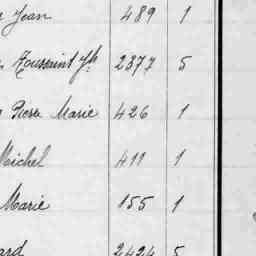 Jean 489 1
Toussaint Yh 2377 5
Pierre Marie 426 1
Michel 411 1
Marie 155 1
ard 2424 5